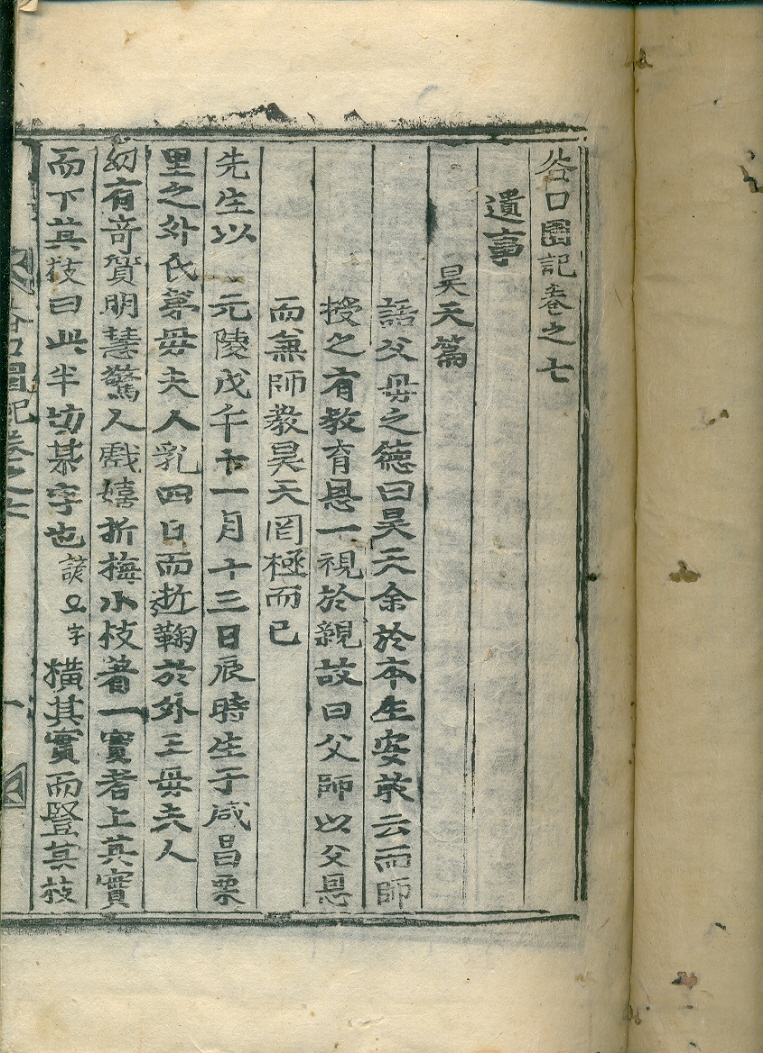 谷口園記卷之七
遺事
昊天篇
語父母之德曰昊天余於本生安敢云而師
授之有教育恩一視於親故曰父師以父恩
而兼師教昊天罔極而已
先生以 元陵戊午十一月十三日辰時生于咸昌栗
里之外氏第母夫人乳四日而逝鞠於外王母夫人
幼有奇質明慧驚人戲嬉折梅小枝著一實者上其實
而下其枝曰此半切某字也 諺 字 橫其實而竪其枝
谷口園記卷之七 一